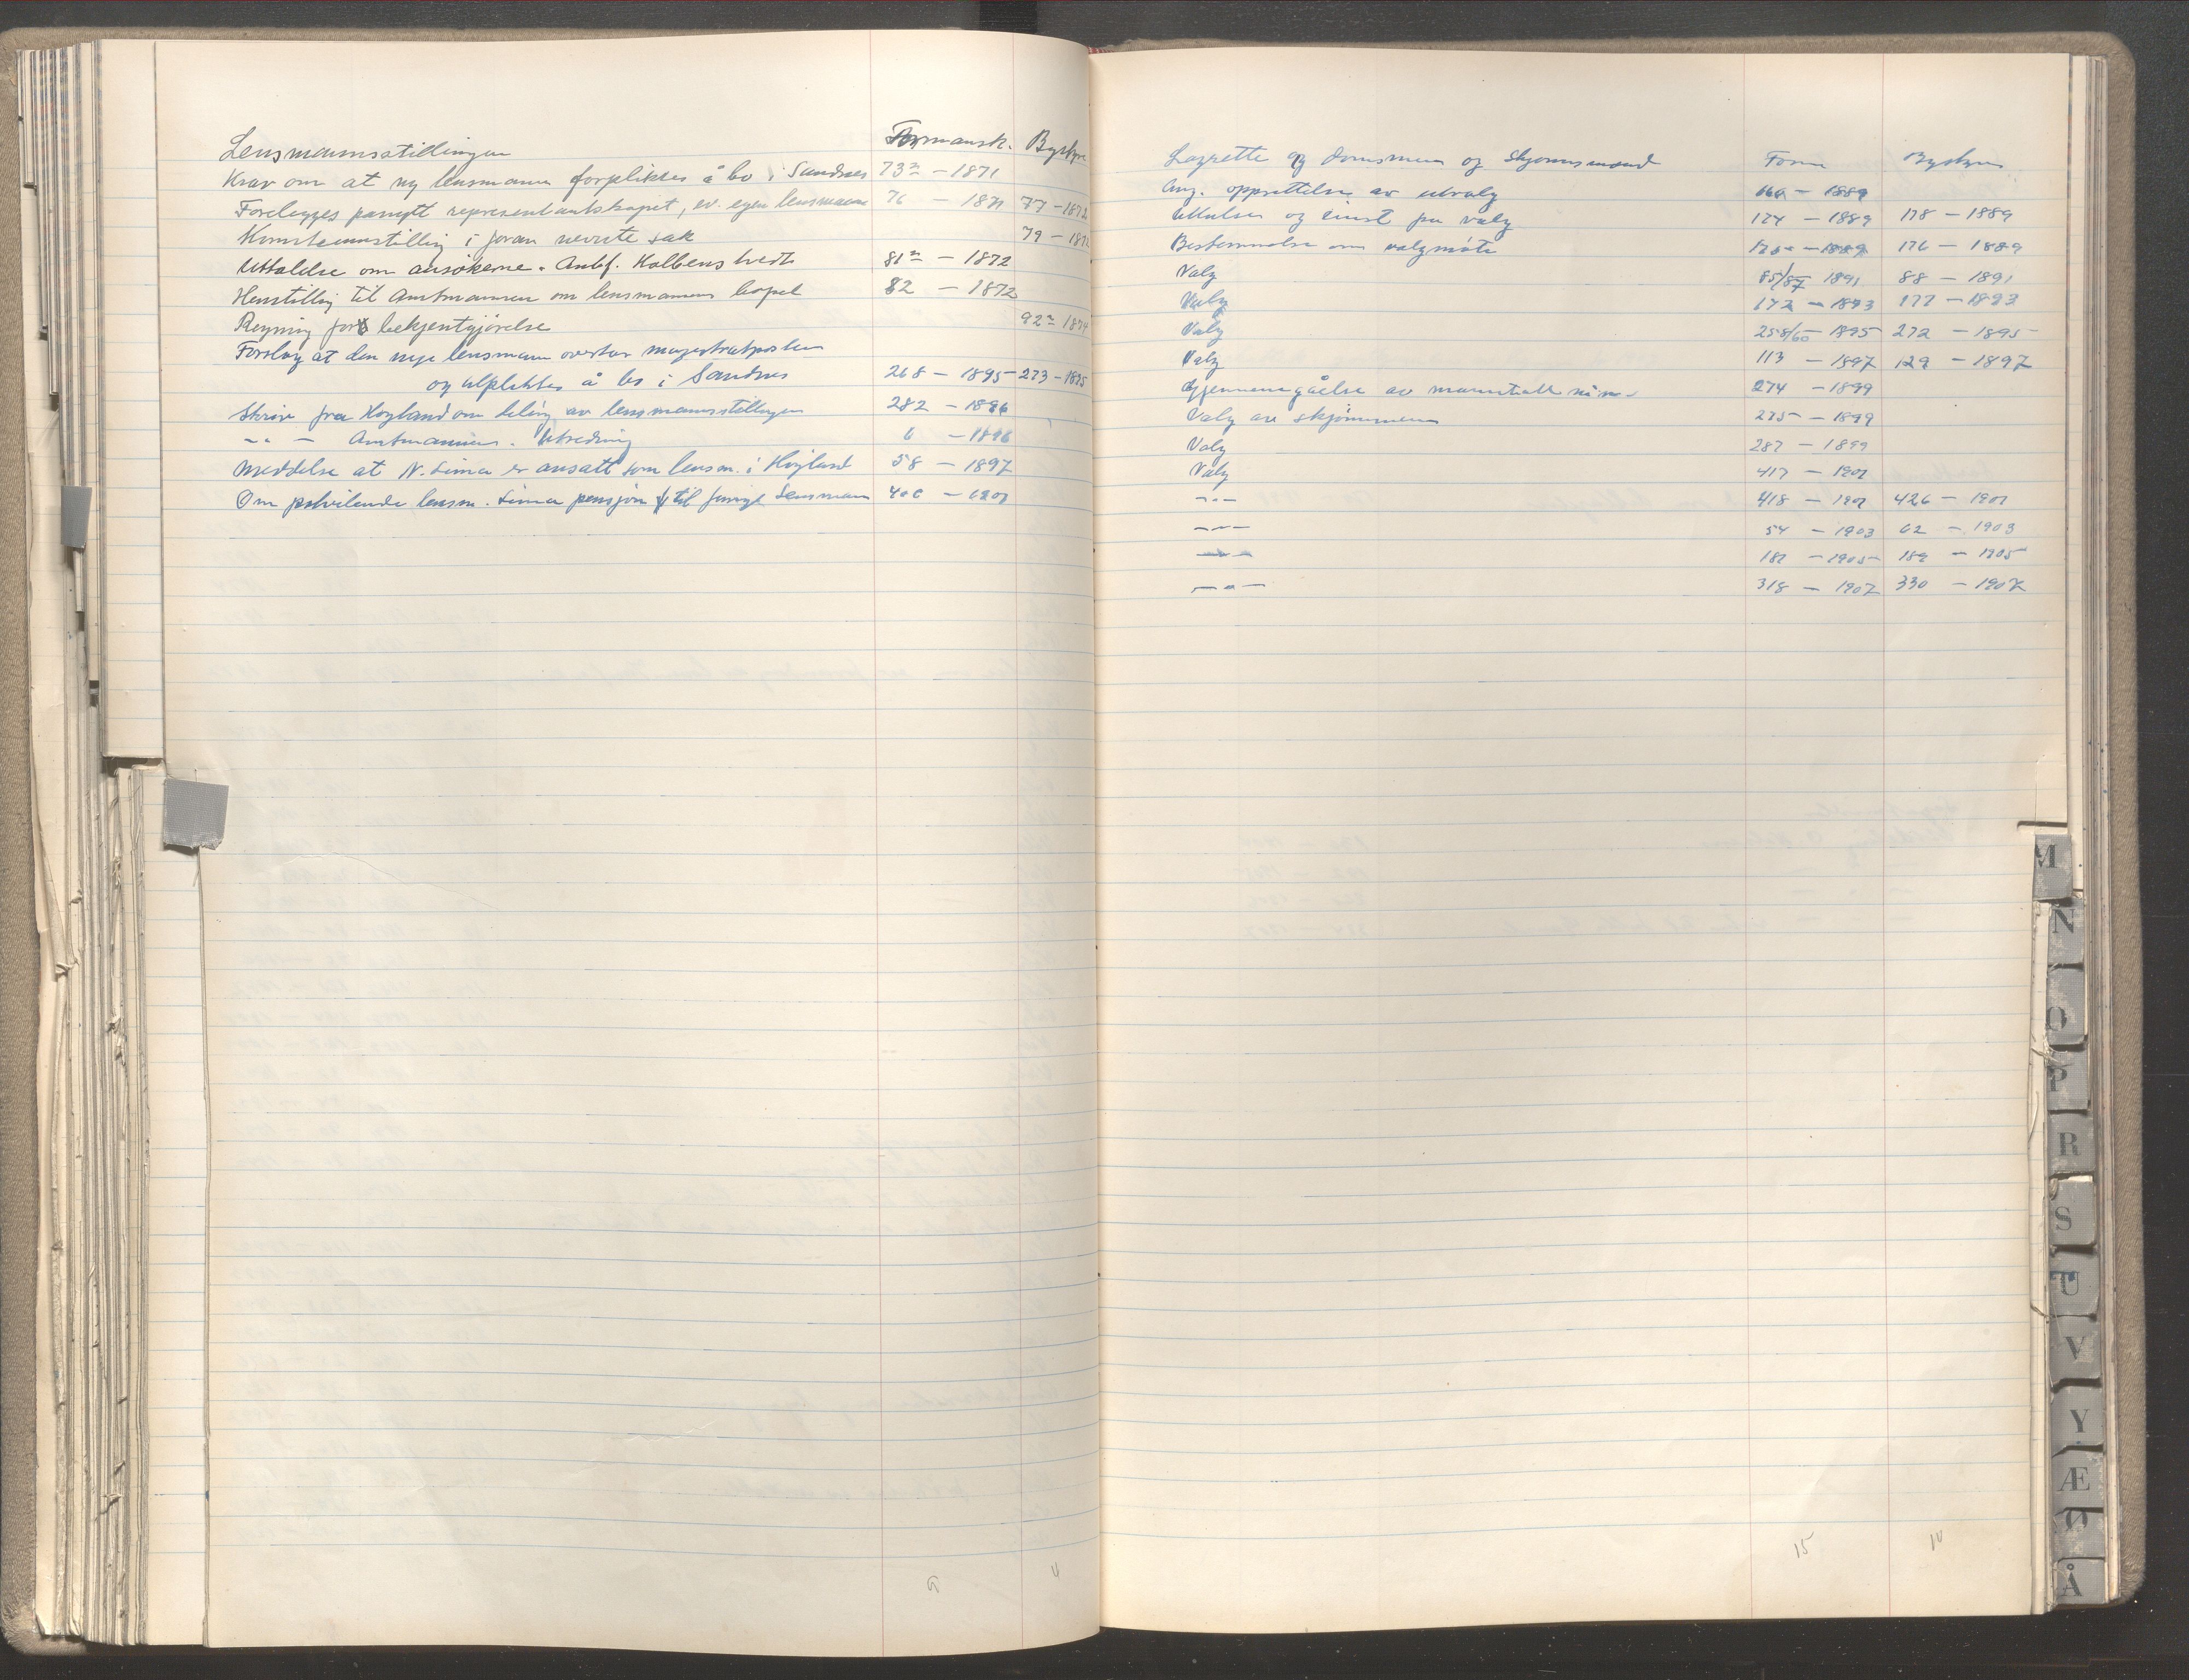 Lensmannsstillingen Formansk. Bystyre
Krav om at ny lensmann forpliktes å bo i Sandnes 73² – 1871
Forelegges panytt representantskapet, ev. egen lensmann 76 – 1871 77 – 1872
Komiteinnstilling i foran nevnte sak 79 – 1872
Uttalelse om ansøkerne. Anbf. 81² – 1872
Henstilling til Amtmannen om lensmannens bopel 82 – 1872
Regning for bekjentgjørelse 92² 1874
Forslag at den nye lensmann overtar magistratposten
og tilpliktes å bo i Sandnes 268 – 1895 273 – 1895
Skriv fra Høyland om deling av lensmannsstillingen 282 – 1896
–"– Amtmannen. Utredning 6 – 1896
Meddelse at N. Lima er ansatt som lensm. i Høyland 58 – 1897
Om lensm. Lima pensjon til Lensmann 400
Lagrette og domsmenn og skjønnsmænd Form Bystyre
Ang. opprettelse av utvalg – 1889
Uttalelse og på valg 174 – 1889 178 – 1889
Bestemmelse om valgmøte – 1889 176 – 1889
Valg 85/87 1891 88 – 1891
Valg 172 – 1893 177 – 1893
Valg 258/60 – 1895 272 – 1895
Valg 113 – 1897 129 – 1897
Gjennemgåelse av manntall 274 – 1899
Valg av skjønnsmenn 275 – 1899
Valg 287 – 1899
Valg 417 – 1901
–"– 418 – 1901 426 – 1901
–"– 54 – 1903 62 – 1903
–"– 182 – 1905 189 – 1905
–"– 318 – 1907 330 – 1907
15 10
M
N
O
P
R
S
U
V
Y
Æ
Ø
Å